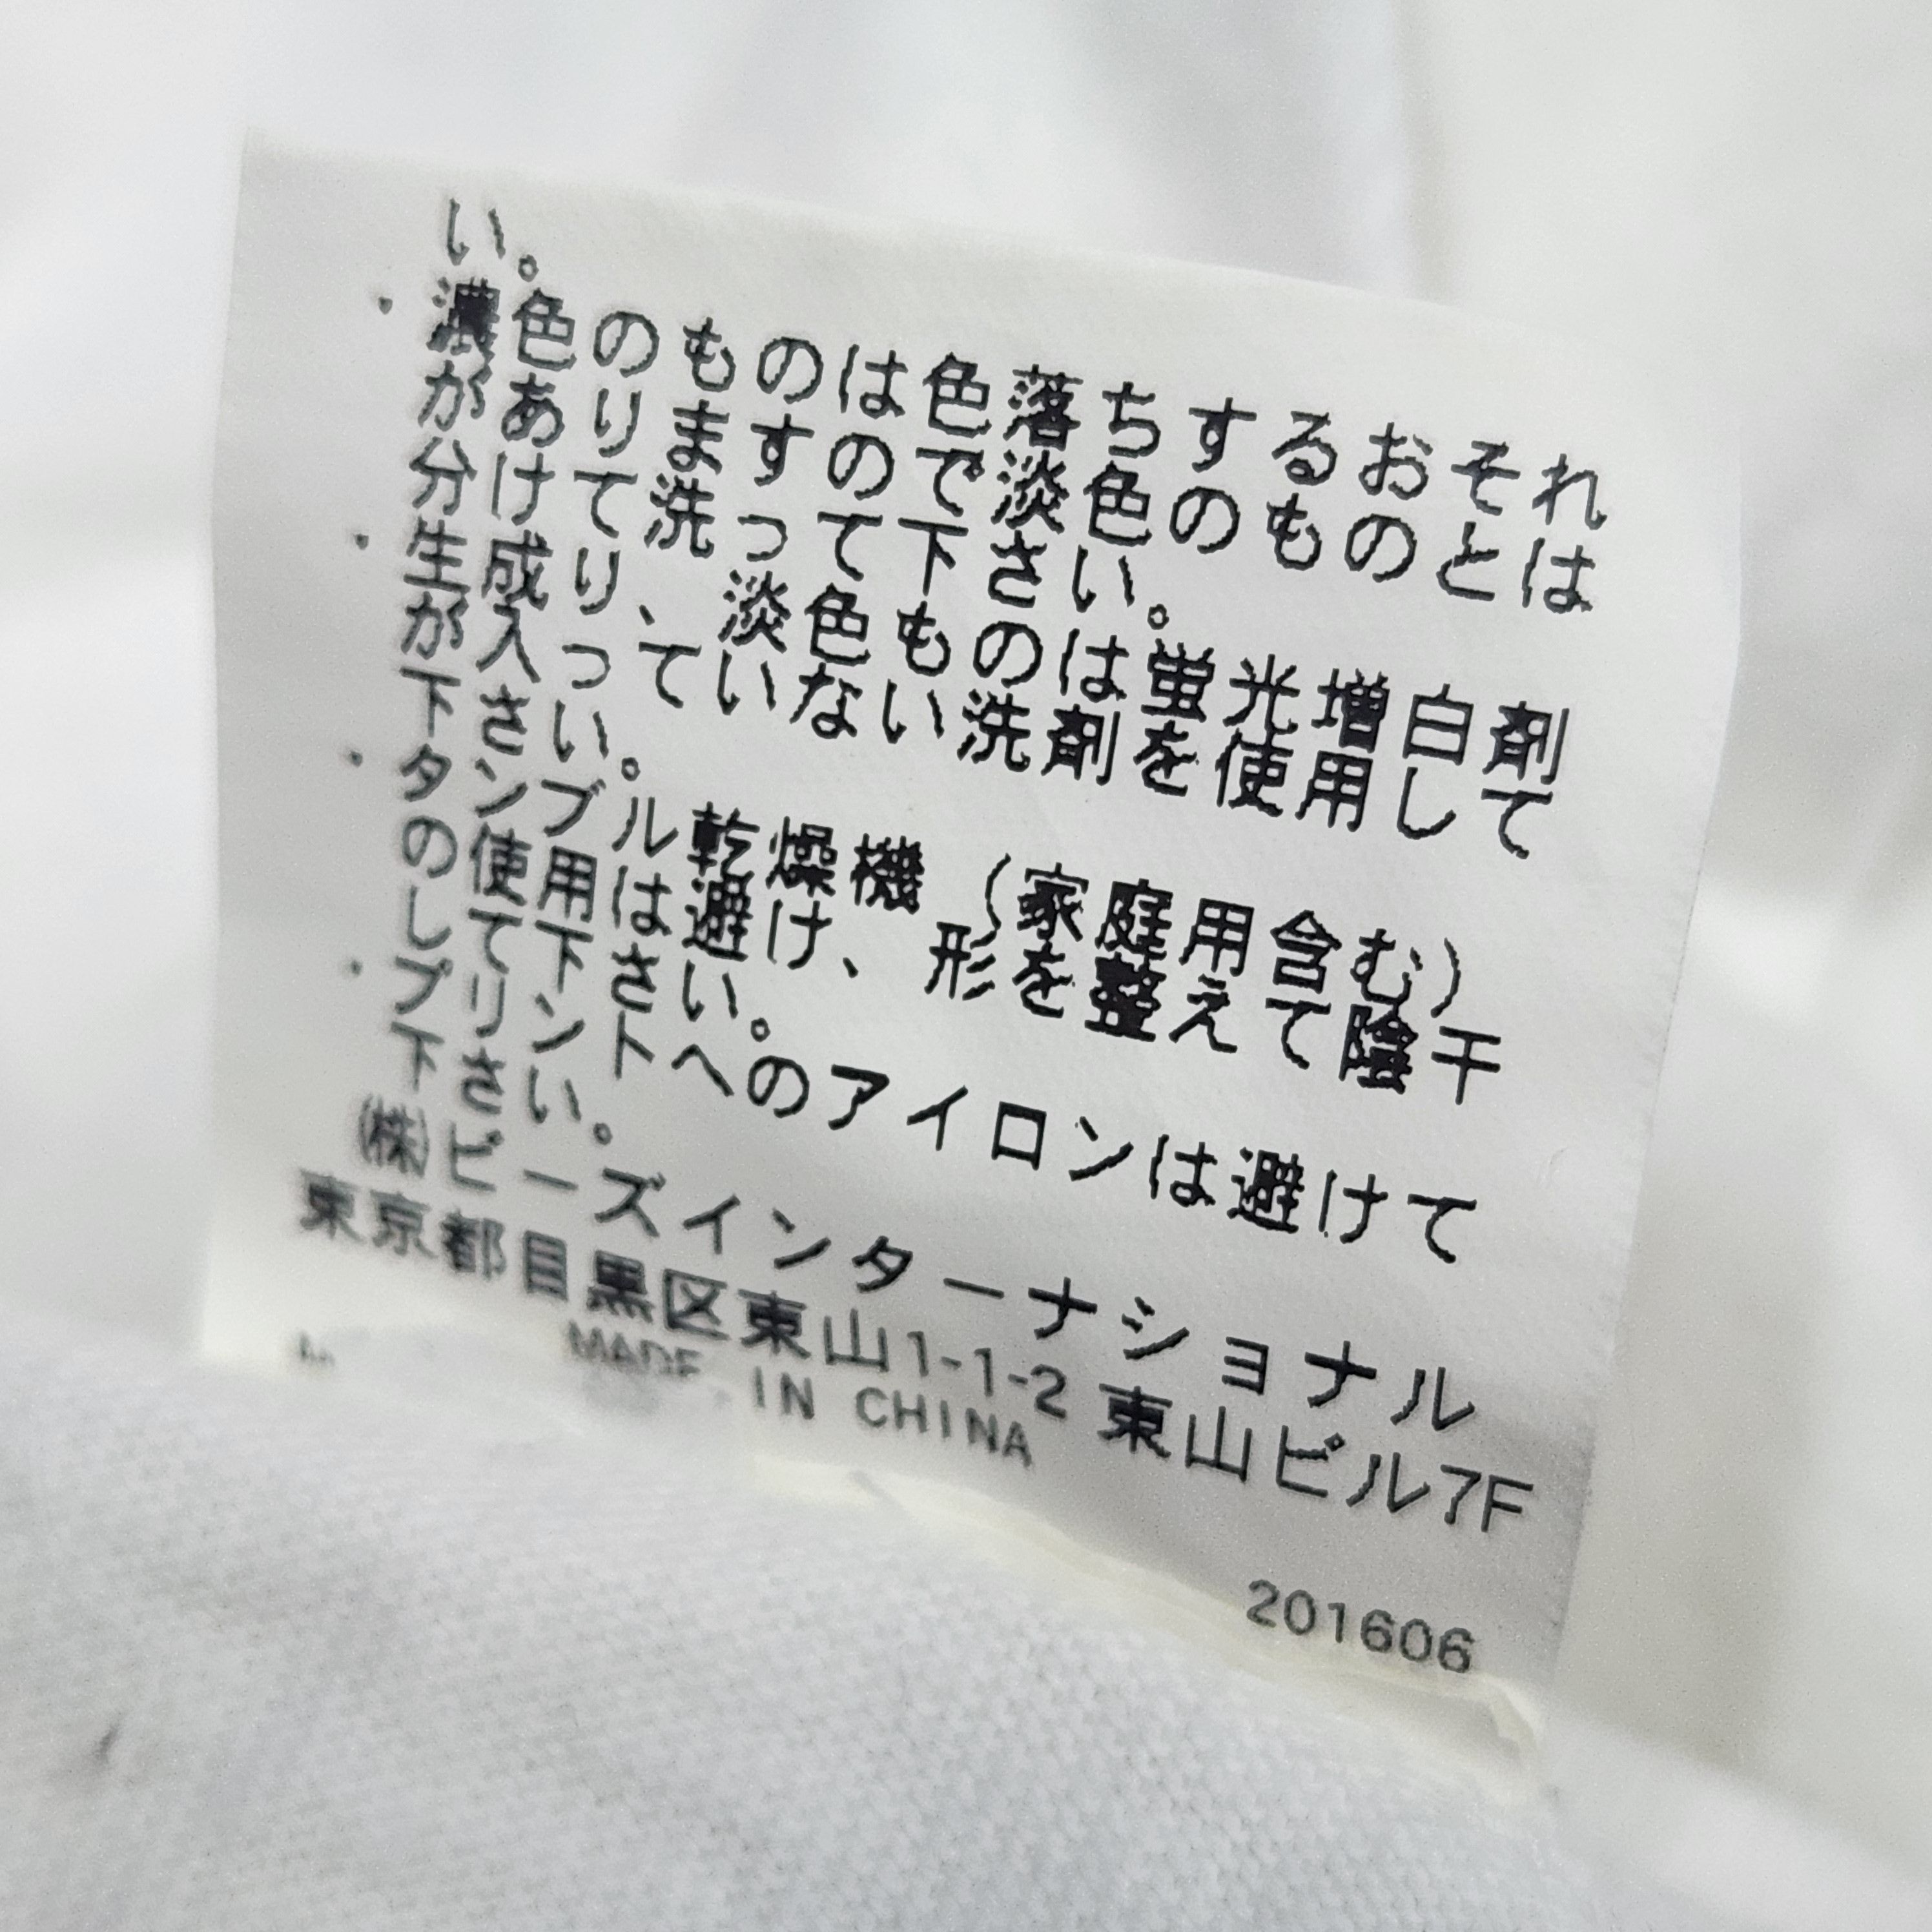 い。
・濃色のものは色落ちするおそれ
がありますので淡色のものとは
分けて洗って下さい。
・生成り、淡色ものは蛍光増白剤
が入っていない洗剤を使用して
下さい。
・タンブル乾燥機(家庭用含む)
の使用は避け、形を整えて陰干
しして下さい。
・プリントへのアイロンは避けて
下さい。
㈱ビーズインターナショナル
東京都目黒区東山1-1-2 東山ビル7F
MADE IN CHINA
201606